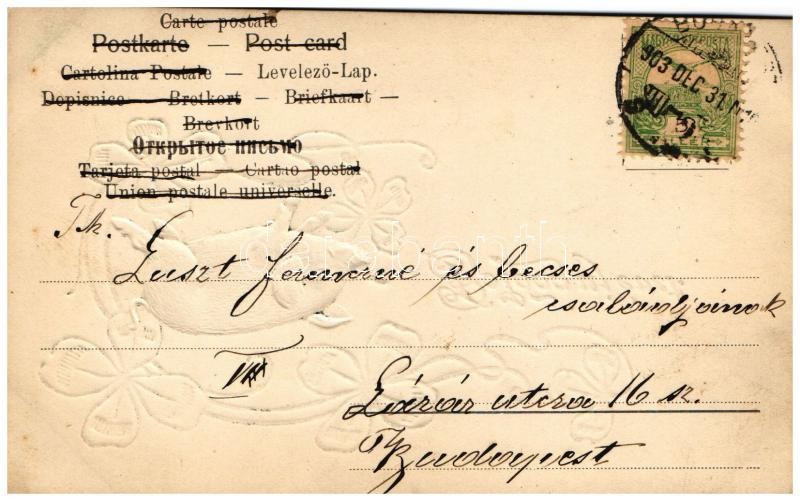 Carte postale
Postkarte — Post card
Cartolina Postale — Levelező-Lap.
Dopisnice — Bretkort — Briefkaart —
Brevkort
Открытое письмо
Tarjeta postal — Cartao postal
Union postale universelle.
903 DEC 31
Tk.
Luszt Ferencné és becses
családjának
VII
Lázár utcza 16 sz.
Budapest
darabanth